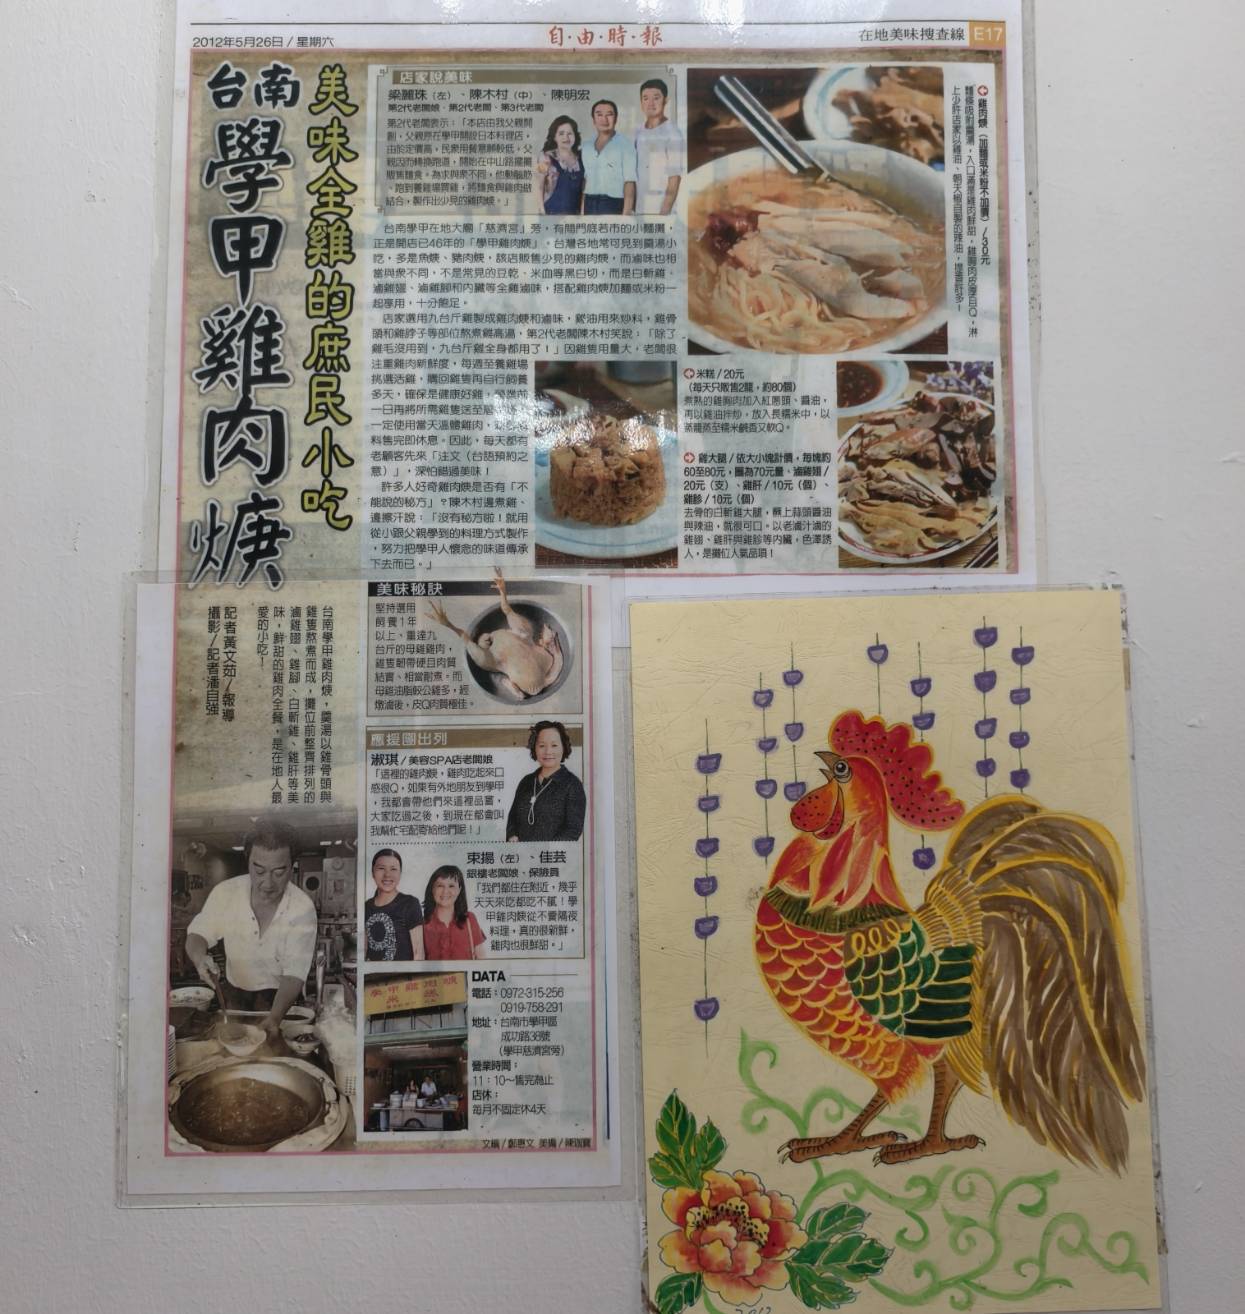 2012年5月26日 / 星期六
自·由·時·報
在地美味搜查線 E17
台南
學甲雞肉焿
美味全雞的庶民小吃
店家說美味
梁麗珠（左）、陳木村（中）、陳明宏
第2代老闆娘、第2代老闆、第3代老闆
第2代老闆表示：「本店由我父親開
創，父親原在學甲開設日本料理店，
由於定價高，民眾用餐意願較低，父
親因而轉換跑道，開始在中山路擺攤
販售麵食。為求與眾不同，他動腦筋
、跑到養雞場買雞，將麵食與雞肉做
結合，製作出少見的雞肉焿。」
台南學甲在地大廟「慈濟宮」旁，有間門庭若市的小麵攤，
正是開店已46年的「學甲雞肉焿」。台灣各地常可見到羹湯小
吃，多是魚焿、豬肉焿，該店販售少見的雞肉焿，而滷味也相
當與眾不同，不是常見的豆乾、米血等黑白切，而是白斬雞、
滷雞翅、滷雞腳和內臟等全雞滷味，搭配雞肉焿加麵或米粉一
起享用，十分飽足。
店家選用九台斤雞製成雞肉焿和滷味，雞油用來炒料，雞骨
頭和雞脖子等部位熬煮雞高湯，第2代老闆陳木村笑說：「除了
雞毛沒用到，九台斤雞全身都用了！」因雞隻用量大，老闆很
注重雞肉新鮮度，每週至養雞場
挑選活雞，購回雞隻再自行飼養
多天，確保是健康好雞，營業前
一日再將所需雞隻送至屠
一定使用當天溫體雞肉，
料售完即休息。因此，每天都有
老顧客先來「注文（台語預約之
意）」，深怕錯過美味！
許多人好奇雞肉焿是否有「不
能說的秘方」？陳木村邊煮雞、
邊擦汗說：「沒有秘方啦！就用
從小跟父親學到的料理方式製作
，努力把學甲人懷念的味道傳承
下去而已。」
雞肉焿（加麵或米粉不加價）/ 30元
麵條吸附羹湯，入口滿是雞肉鮮甜，雞胸肉皮厚且Q，淋
上少許店家以雞油、朝天椒自製的辣油，提香許多！
米糕 / 20元
（每天只販售2籠，約80個）
煮熟的雞胸肉加入紅蔥頭、醬油，
再以雞油拌炒，放入長糯米中，以
蒸籠蒸至糯米鹹香又軟Q。
雞大腿 / 依大小塊計價，每塊約
60至80元，圖為70元量、滷雞翅 /
20元（支）、雞肝 / 10元（個）、
雞胗 / 10元（個）
去骨的白斬雞大腿，蘸上蒜頭醬油
與辣油，就很可口。以老滷汁滷的
雞翅、雞肝與雞胗等內臟，色澤誘
人，是攤位人氣品項！
台南學甲雞肉焿，羹湯以雞骨頭與
雞隻熬煮而成，攤位前整齊排列的
滷雞翅、雞腳、白斬雞、雞肝等美
味，鮮甜的雞肉全餐，是在地人最
愛的小吃！
記者黃文茹／報導
攝影／記者潘自強
美味秘訣
堅持選用
飼養1年
以上、重達九
台斤的母雞雞肉，
雞隻韌帶硬且肉質
結實、相當耐煮。而
母雞油脂較公雞多，經
燉滷後，皮Q肉質極佳。
應援團出列
淑琪 / 美容SPA店老闆娘
「這裡的雞肉焿，雞肉吃起來口
感很Q，如果有外地朋友到學甲
，我都會帶他們來這裡品嘗，
大家吃過之後，到現在都會叫
我幫忙宅配寄給他們呢！」
束揚（左）、佳芸
銀樓老闆娘、保險員
「我們都住在附近，幾乎
天天來吃都吃不膩！學
甲雞肉焿從不賣隔夜
料理，真的很新鮮，
雞肉也很鮮甜。」
學甲雞肉焿
米糕
DATA
電話：0972-315-256
0919-758-291
地址：台南市學甲區
成功路38號
（學甲慈濟宮旁）
營業時間：
11：10～售完為止
店休：
每月不固定休4天
文編 / 鄭惠文 美編 / 陳鈱寶